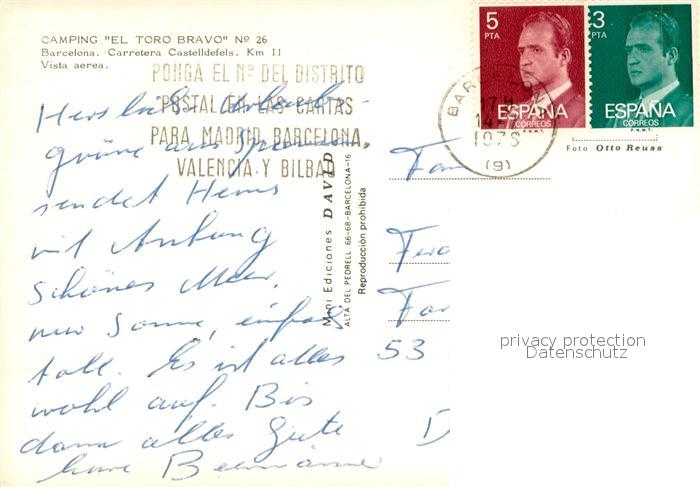 CAMPING "EL TORO BRAVO" Nº 26
Barcelona. Carretera Castelldefels. Km 11
Vista aerea.
PONGA EL Nº DEL DISTRITO
POSTAL EN LAS CARTAS
PARA MADRID, BARCELONA,
VALENCIA Y BILBAO
5
PTA
ESPAÑA
CORREOS
F.N.M.T.
3
PTA
ESPAÑA
CORREOS
F.N.M.T.
BARCEL
1978
(9)
Foto Otto Reuss
Mini Ediciones DAVID
ALTA DEL PEDRELL 66-68-BARCELONA-16
Reproducción prohibida
Herzliche Urlaubs-
grüße aus
sendet
mit Anhang
Schönes Meer,
nur Sonne, einfach
toll. Es ist alles
wohl auf. Bis
dann alles Gute
Fam
Fam
53
D
privacy protection
Datenschutz